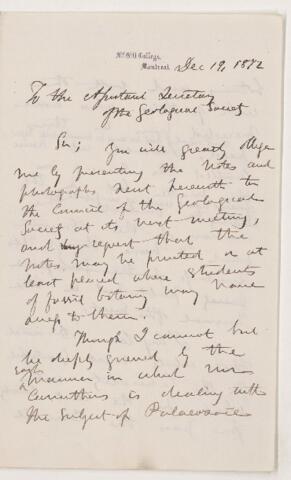 McGill College,
Montreal,
Dec 19, 1872
To the Assistant Secretary
of the Geological Society
Sir; You will greatly oblige
me by presenting the Notes and
photographs sent herewith to
the Council of the Geological
Society at its next meeting,
and my request that the
notes may be printed or at
least placed where students
of fossil botany may have
access to them.
Though I cannot but
be deeply grieved by the
manner in which Mr
Carruthers is dealing with
the subject of Palaeozoic